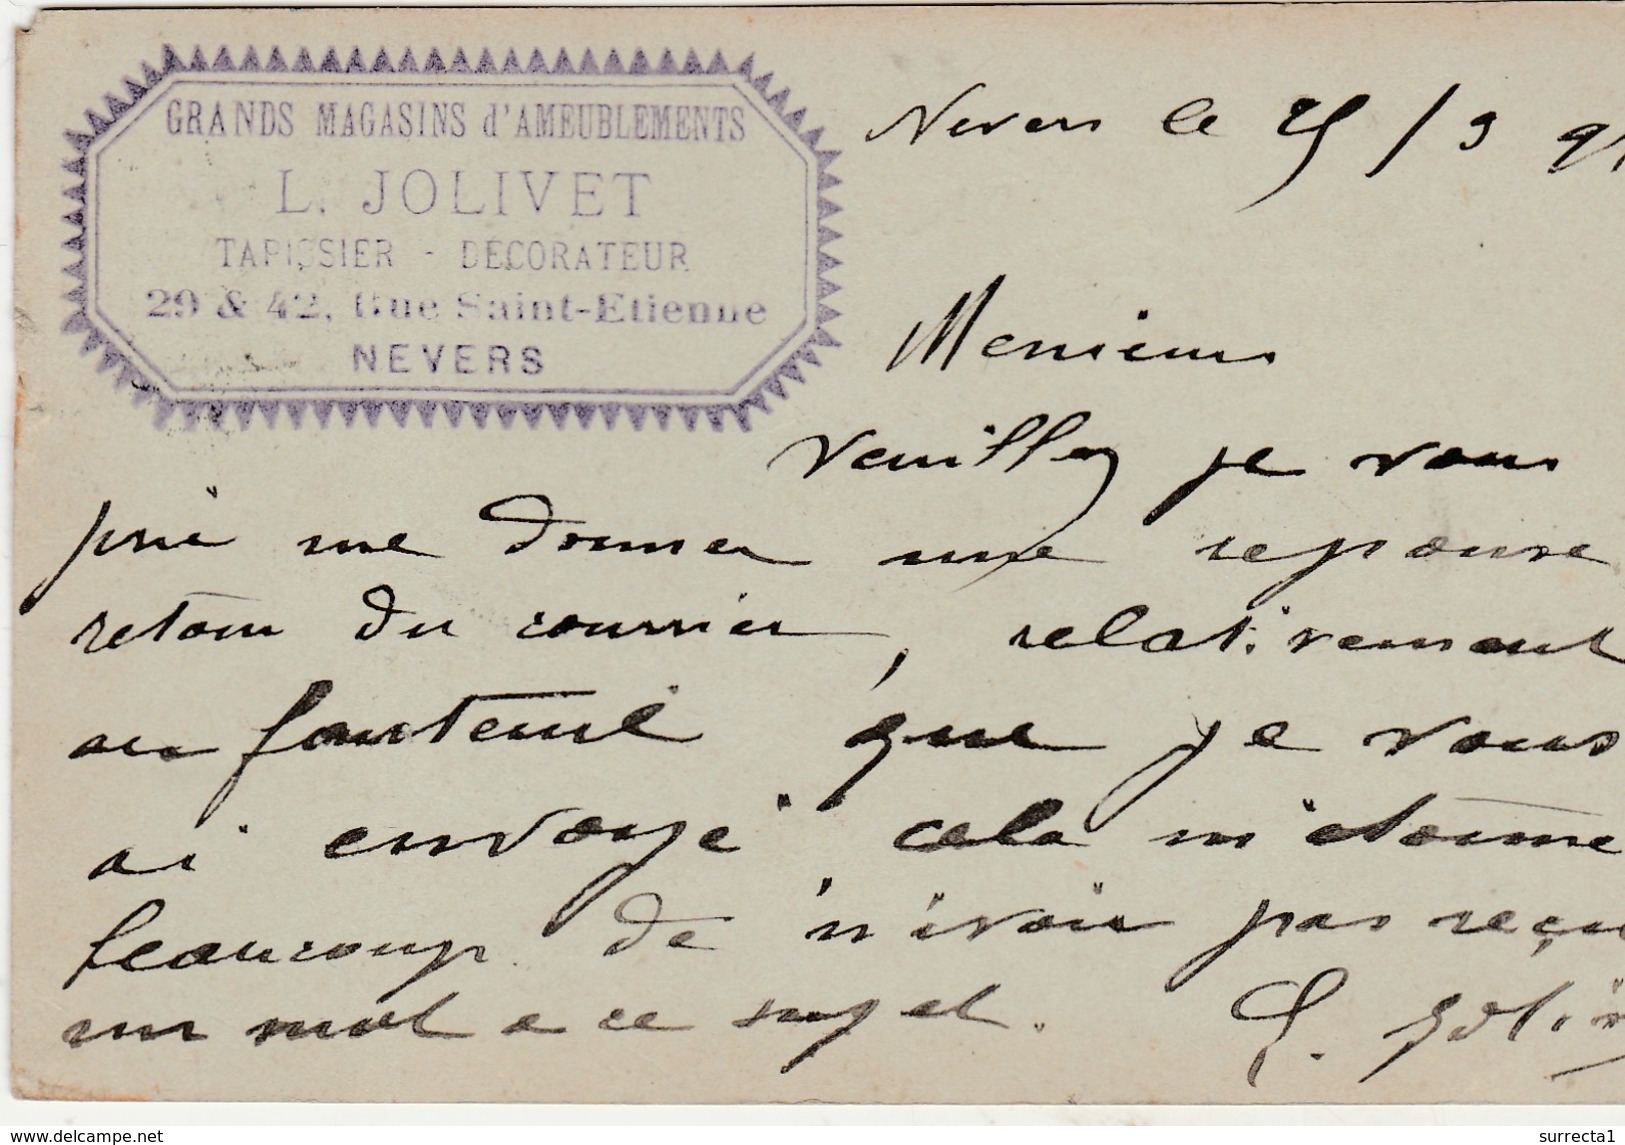 GRANDS MAGASINS d'AMEUBLEMENTS
L. JOLIVET
TAPISSIER - DECORATEUR
29 & 42, Rue Saint-Etienne
NEVERS
Nevers le 25/9 9
Monsieur
Veuillez je vous
prie me donner une reponse
retour du courrier, relativement
au fauteuil que je vous
ai envoyé cela m'étonne
beaucoup de n'avoir pas reçu
un mot a ce sujet. L. Joliv
www.delcampe.net
surrecta1